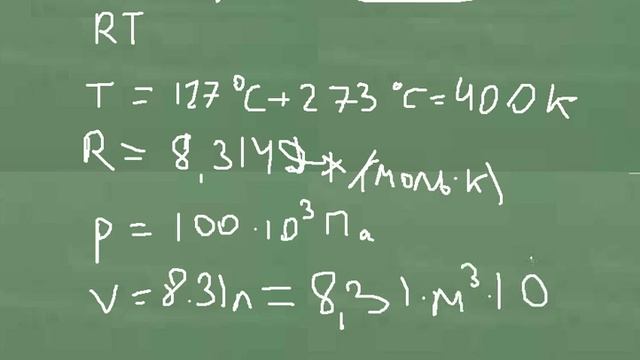 RT
T = 127°C + 273°C = 400K
R = 8,314 Дж/(моль·К)
p = 100·10³ Па
V = 8.31л = 8,31·м³·10